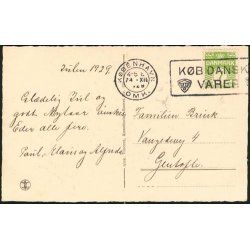 Julen 1929.
Glædelig Jul og
godt Nytaar ønskes
Eder alle fire.
Poul, Klara og Alfrede
KØBENHAVN
24.XII.
OMK.
KØB DANSKE
VARER
DANMARK
Familien Brink
Vangedevej
Gentofte.